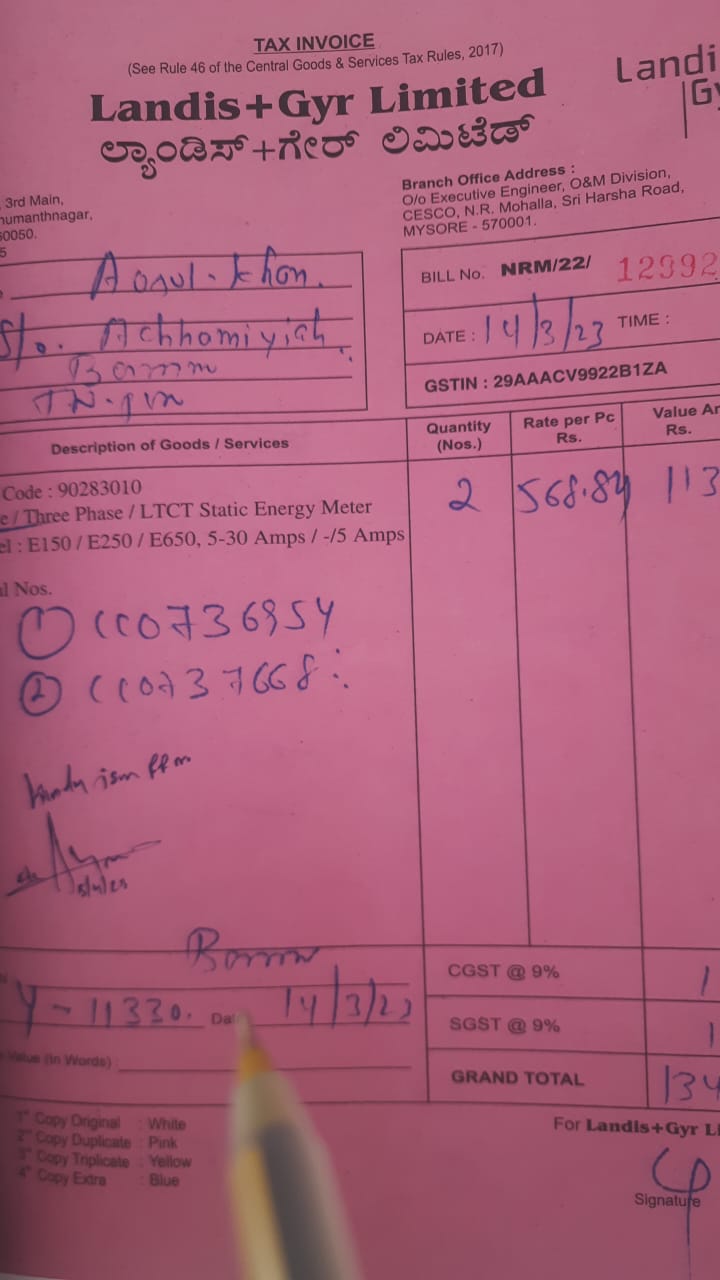 TAX INVOICE
(See Rule 46 of the Central Goods & Services Tax Rules, 2017)
Landis+Gyr Limited
Landi
Gy
ಲ್ಯಾಂಡಿಸ್+ಗೇರ್ ಲಿಮಿಟೆಡ್
, 3rd Main,
numanthnagar,
60050.
5
Branch Office Address :
O/o Executive Engineer, O&M Division,
CESCO, N.R. Mohalla, Sri Harsha Road,
MYSORE - 570001.
khon.
S/o. Achhomiyiah
BILL No. NRM/22/ 12992
DATE : 14/3/23 TIME :
GSTIN : 29AAACV9922B1ZA
Description of Goods / Services
Quantity
(Nos.)
Rate per Pc
Rs.
Value Am
Rs.
Code : 90283010
e / Three Phase / LTCT Static Energy Meter
el : E150 / E250 / E650, 5-30 Amps / -/5 Amps
2 568.84 113
al Nos.
① CC0736954
② CC0737668
Y - 11330. Date 14/3/23
Value (In Words) :
CGST @ 9% 1
SGST @ 9% 1
GRAND TOTAL 134
1st Copy Original : White
2nd Copy Duplicate : Pink
3rd Copy Triplicate : Yellow
4th Copy Extra : Blue
For Landis+Gyr Li
Signature